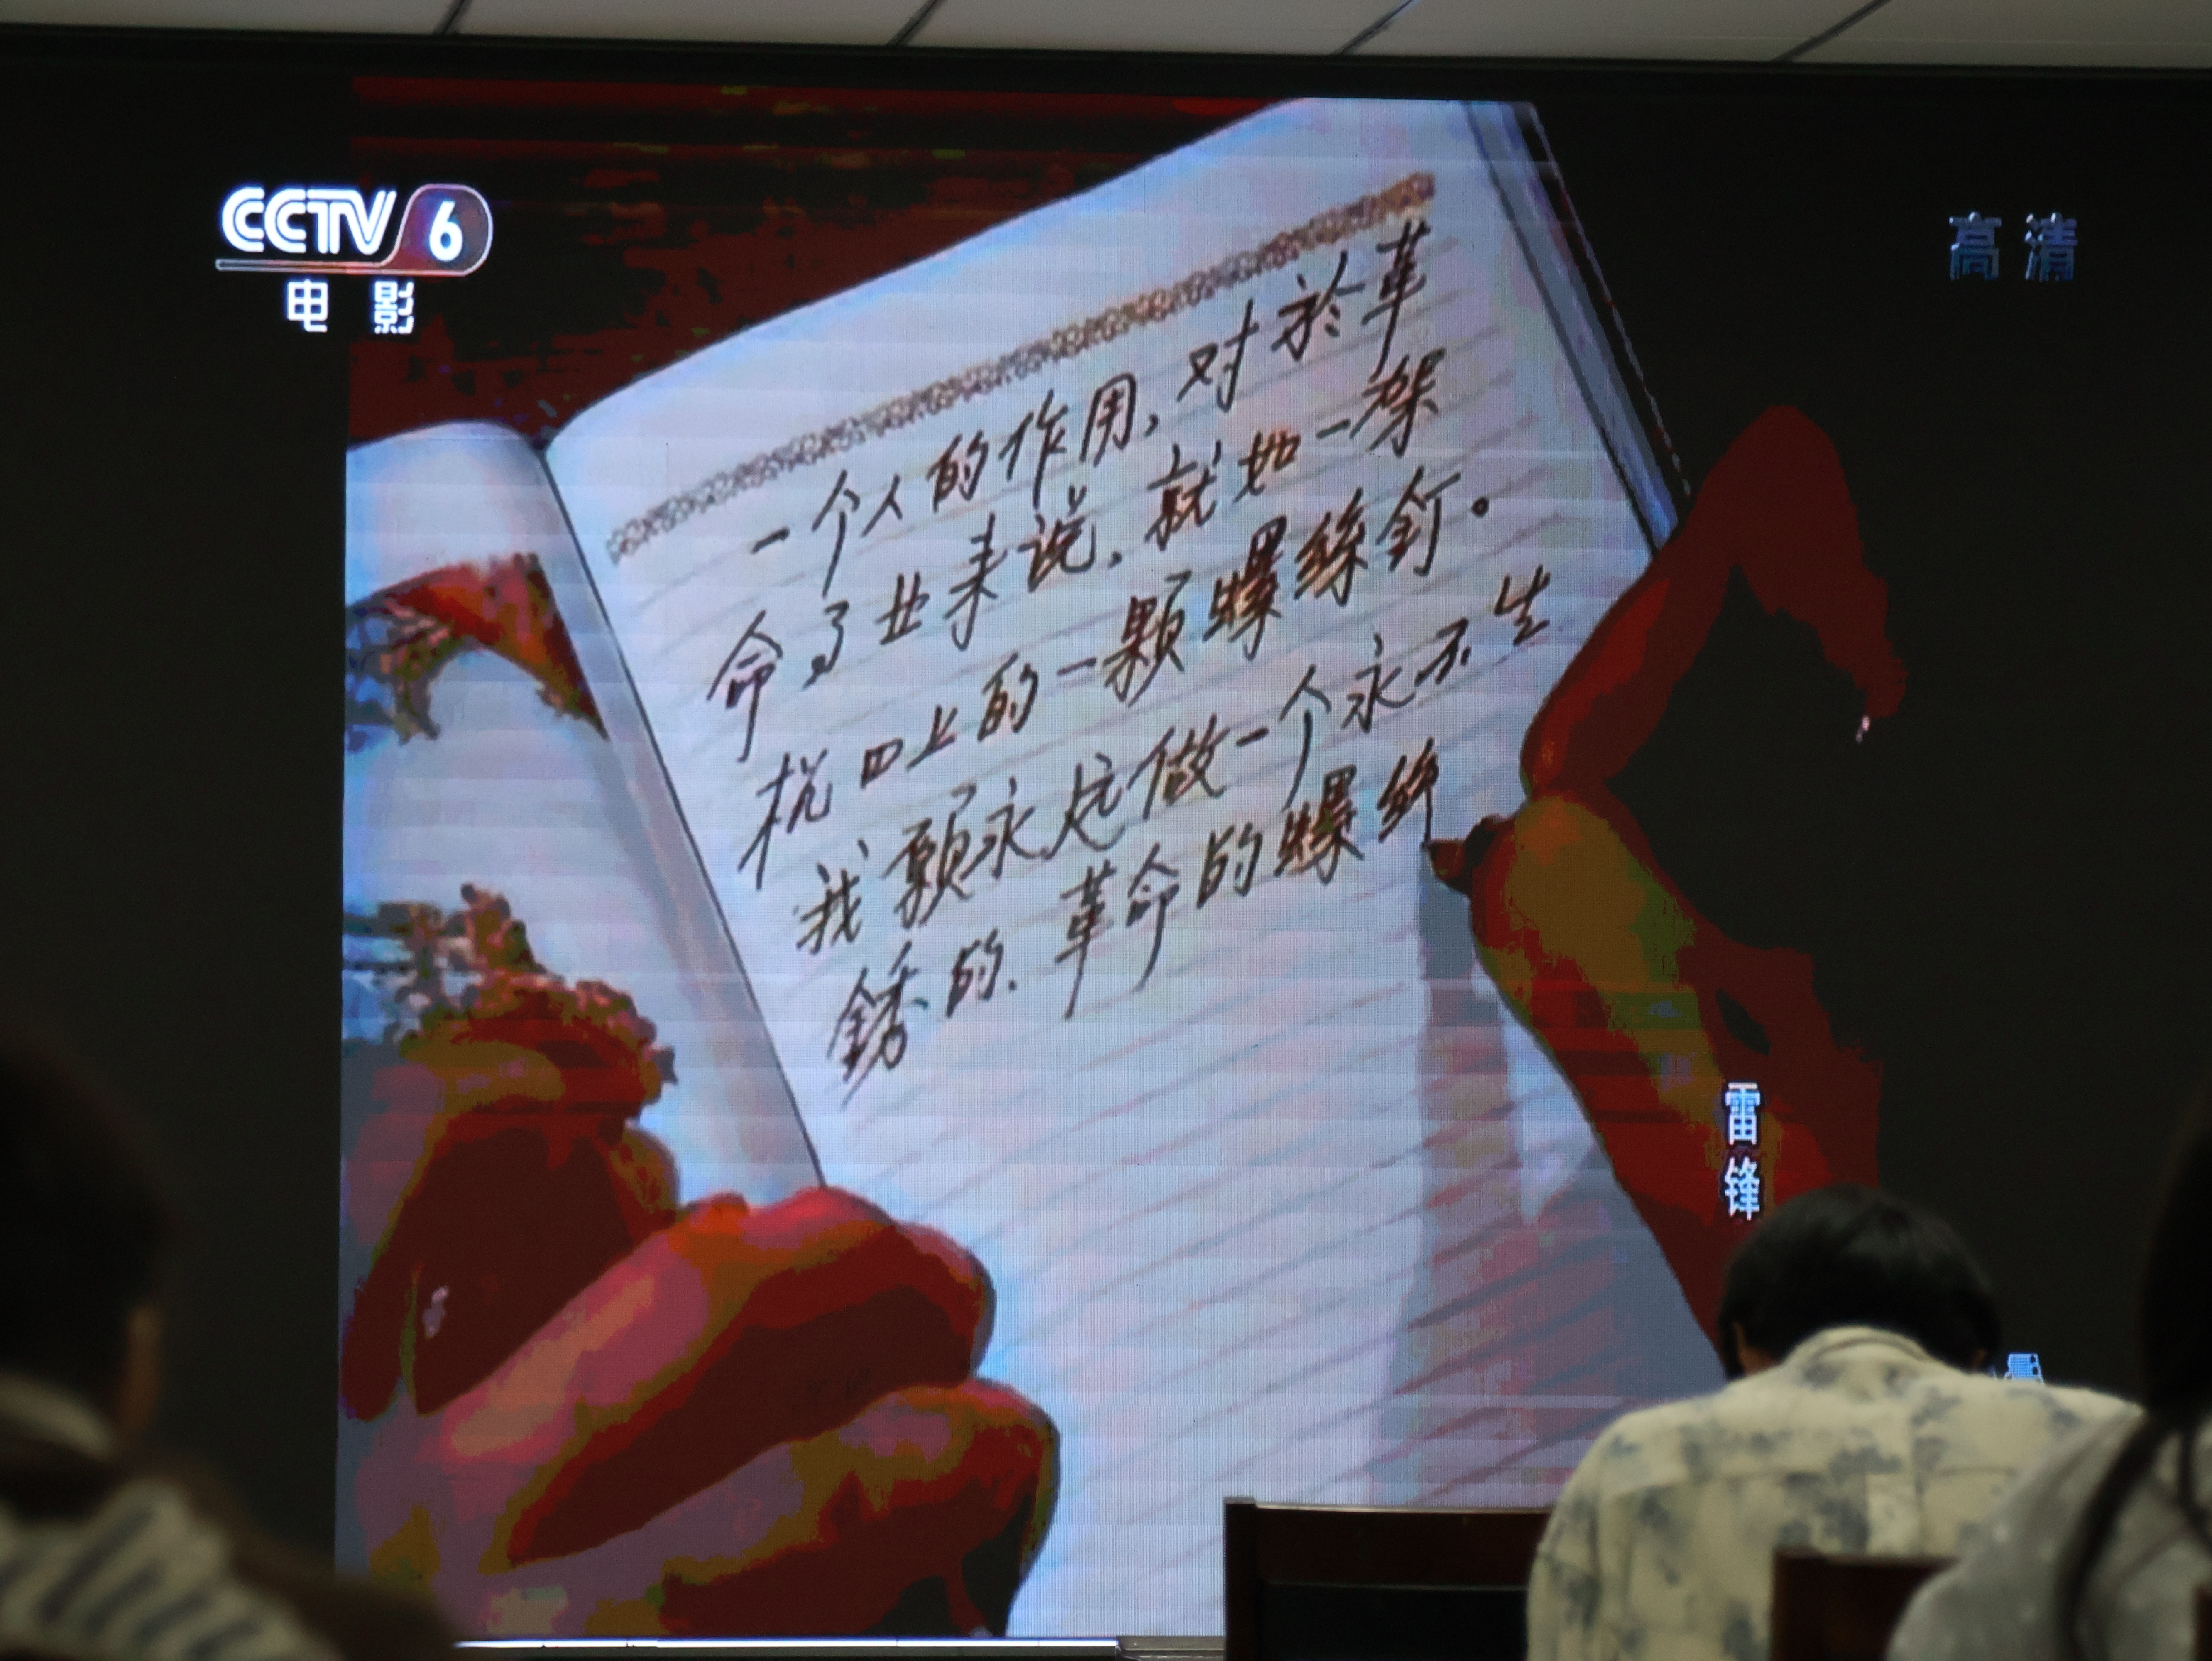 CCTV 6
电影
高清
一个人的作用,对於革
命了业来说,就如一架
机口上的一颗螺絲釘。
我願永远做一个永不生
銹的、革命的螺絲
雷锋